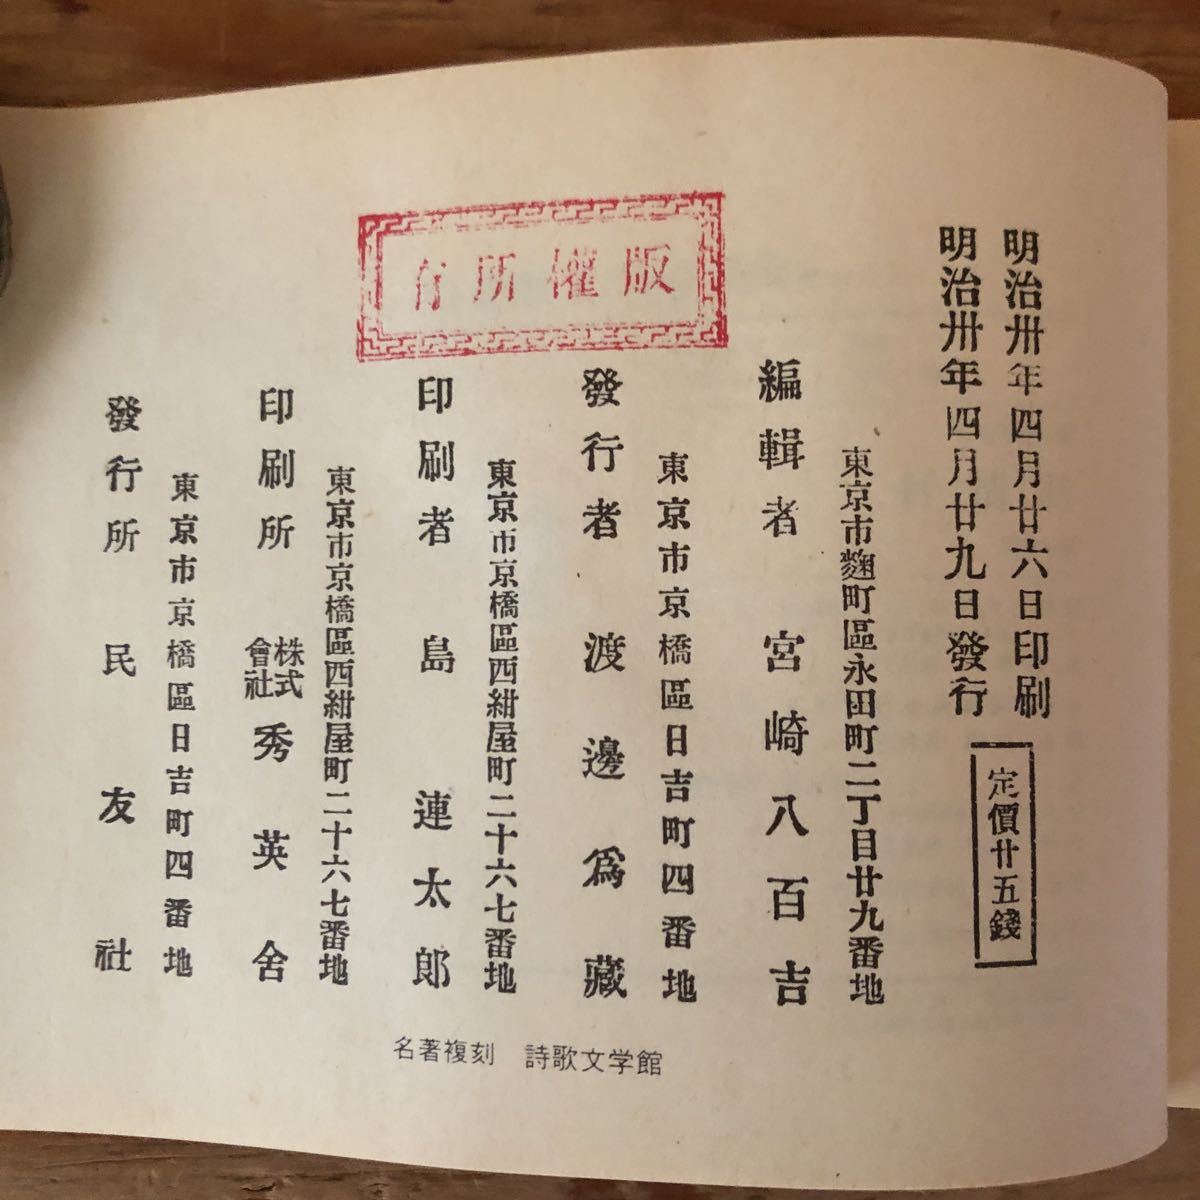 明治卅年四月廿六日印刷
明治卅年四月廿九日發行
定價廿五錢
版權所有
東京市麴町區永田町二丁目廿九番地
編輯者 宮崎八百吉
東京市京橋區日吉町四番地
發行者 渡邊爲藏
東京市京橋區西紺屋町二十六七番地
印刷者 島連太郎
東京市京橋區西紺屋町二十六七番地
印刷所 株式會社 秀英舍
東京市京橋區日吉町四番地
發行所 民友社
名著複刻 詩歌文学館